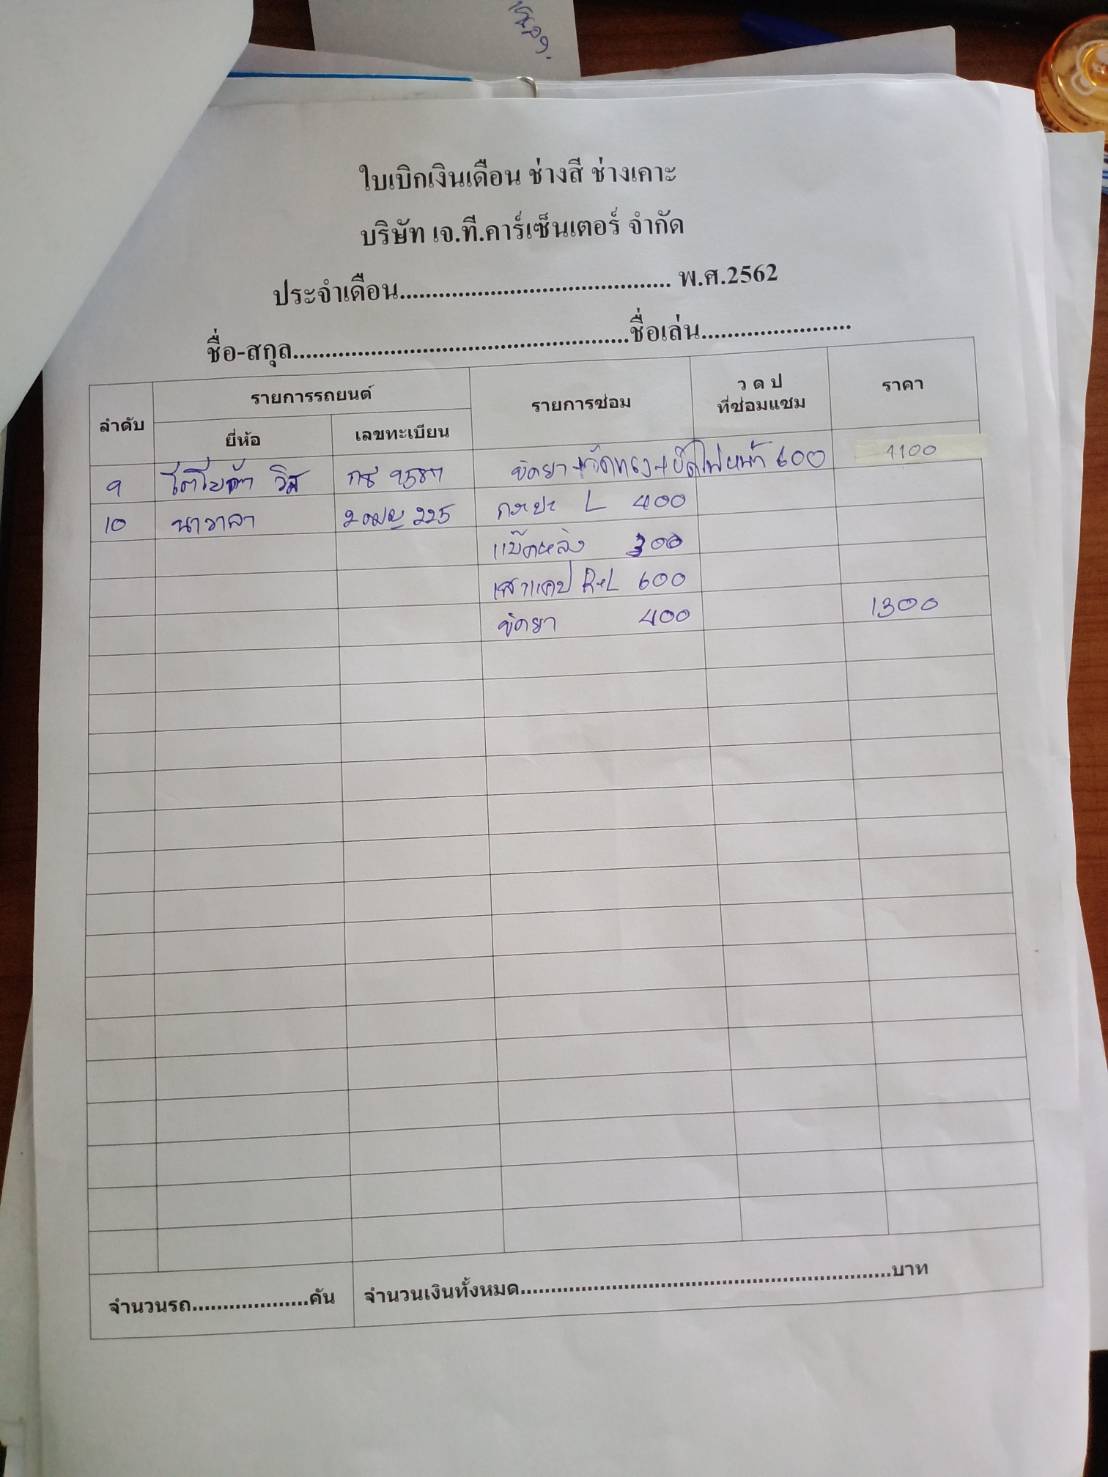 ใบเบิกเงินเดือน ช่างสี ช่างเคาะ
บริษัท เจ.ที.คาร์เซ็นเตอร์ จำกัด
ประจำเดือน.......................................... พ.ศ.2562
ชื่อ-สกุล....................................................ชื่อเล่น.......................
ลำดับ รายการรถยนต์ รายการซ่อม ว ด ป ที่ซ่อมแซม ราคา
ยี่ห้อ เลขทะเบียน
9 โตโยต้า วีส ขัดยา 600 1100
10 นาวาลา 225 กะบะ L 400
แป๊คหลัง 300
เสาแคป R+L 600
ขัดยา 400 1300
จำนวนรถ...................คัน จำนวนเงินทั้งหมด............................................................บาท